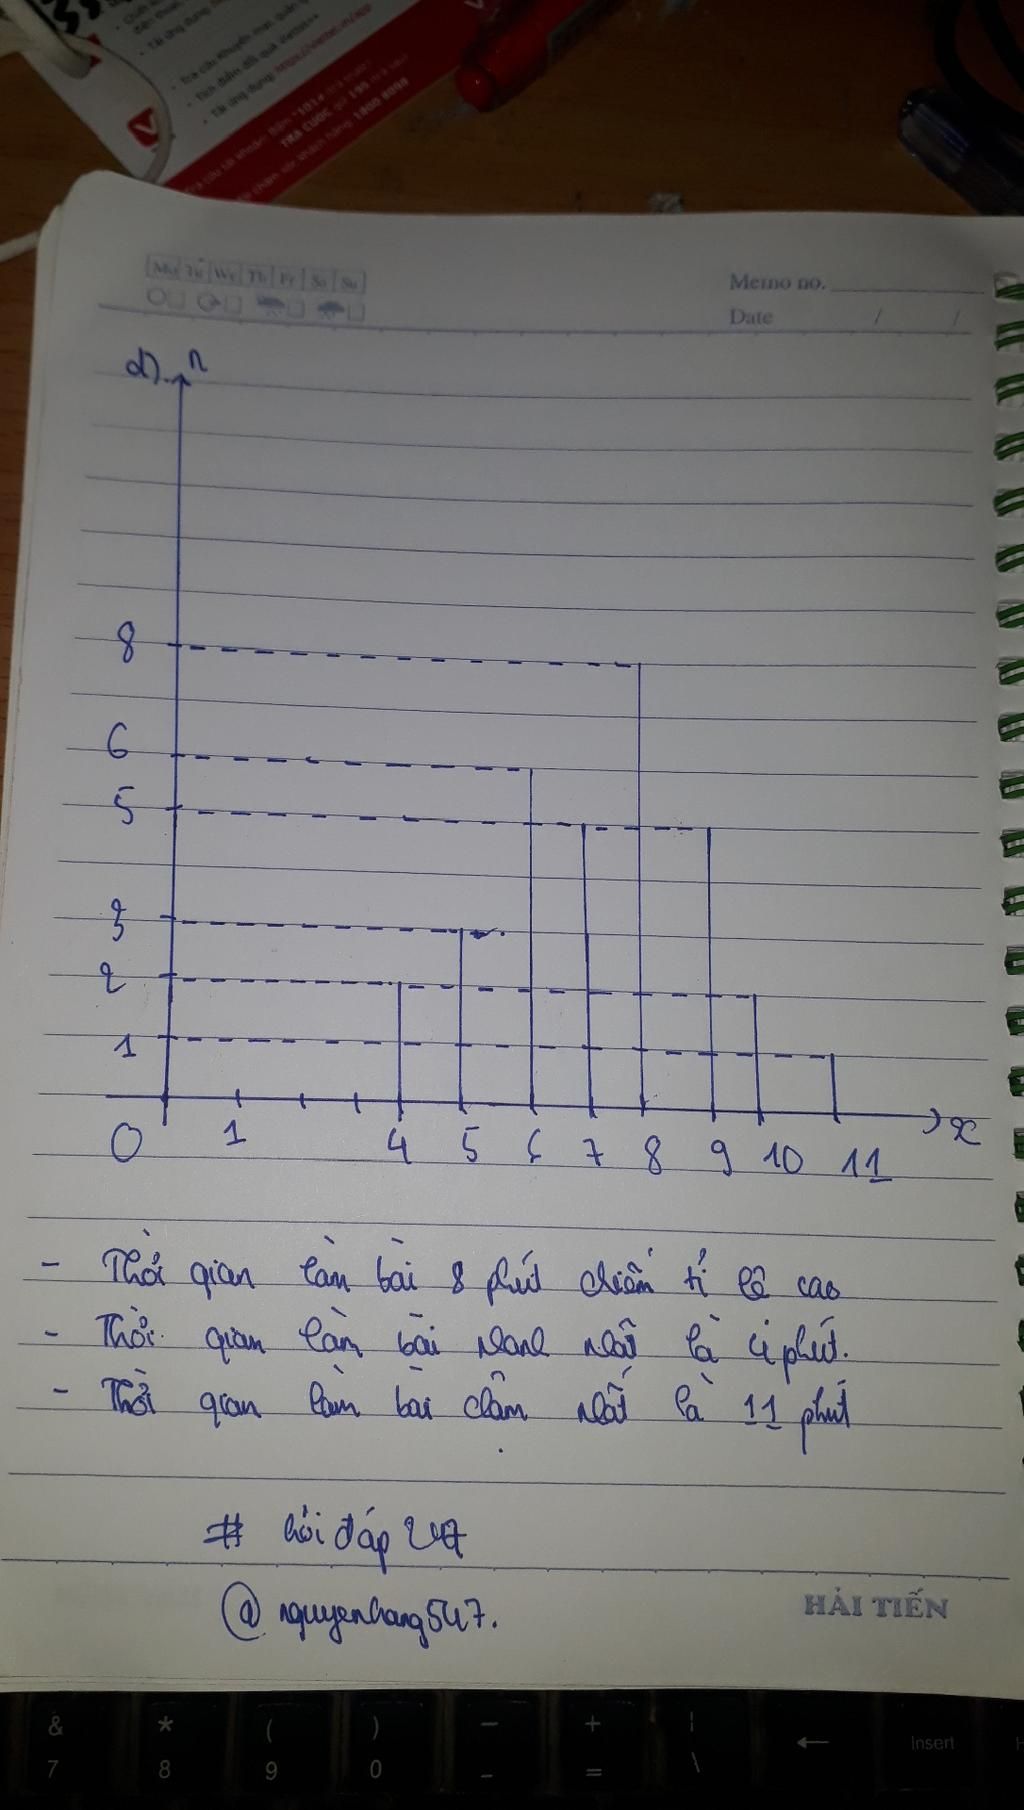 • Tải ứng dụng
https://viettel.vn/app
TRA CƯỚC gửi 199
1800 8098
Mo Tu We Th Fr Sa Su
Memo no.
Date / /
d) n
8
6
5
3
2
1
0 1 4 5 6 7 8 9 10 11 x
- Thời gian làm bài 8 phút chiếm tỉ lệ cao
- Thời gian làm bài nhanh nhất là 4 phút.
- Thời gian làm bài chậm nhất là 11 phút
# hỏi đáp 247
@nguyenhang547.
HẢI TIẾN
& * ( ) _ + | ← Insert
7 8 9 0 - = \